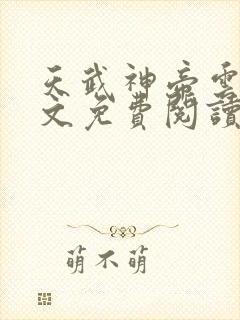 天武神帝雲
文免費閱讀
萌不萌